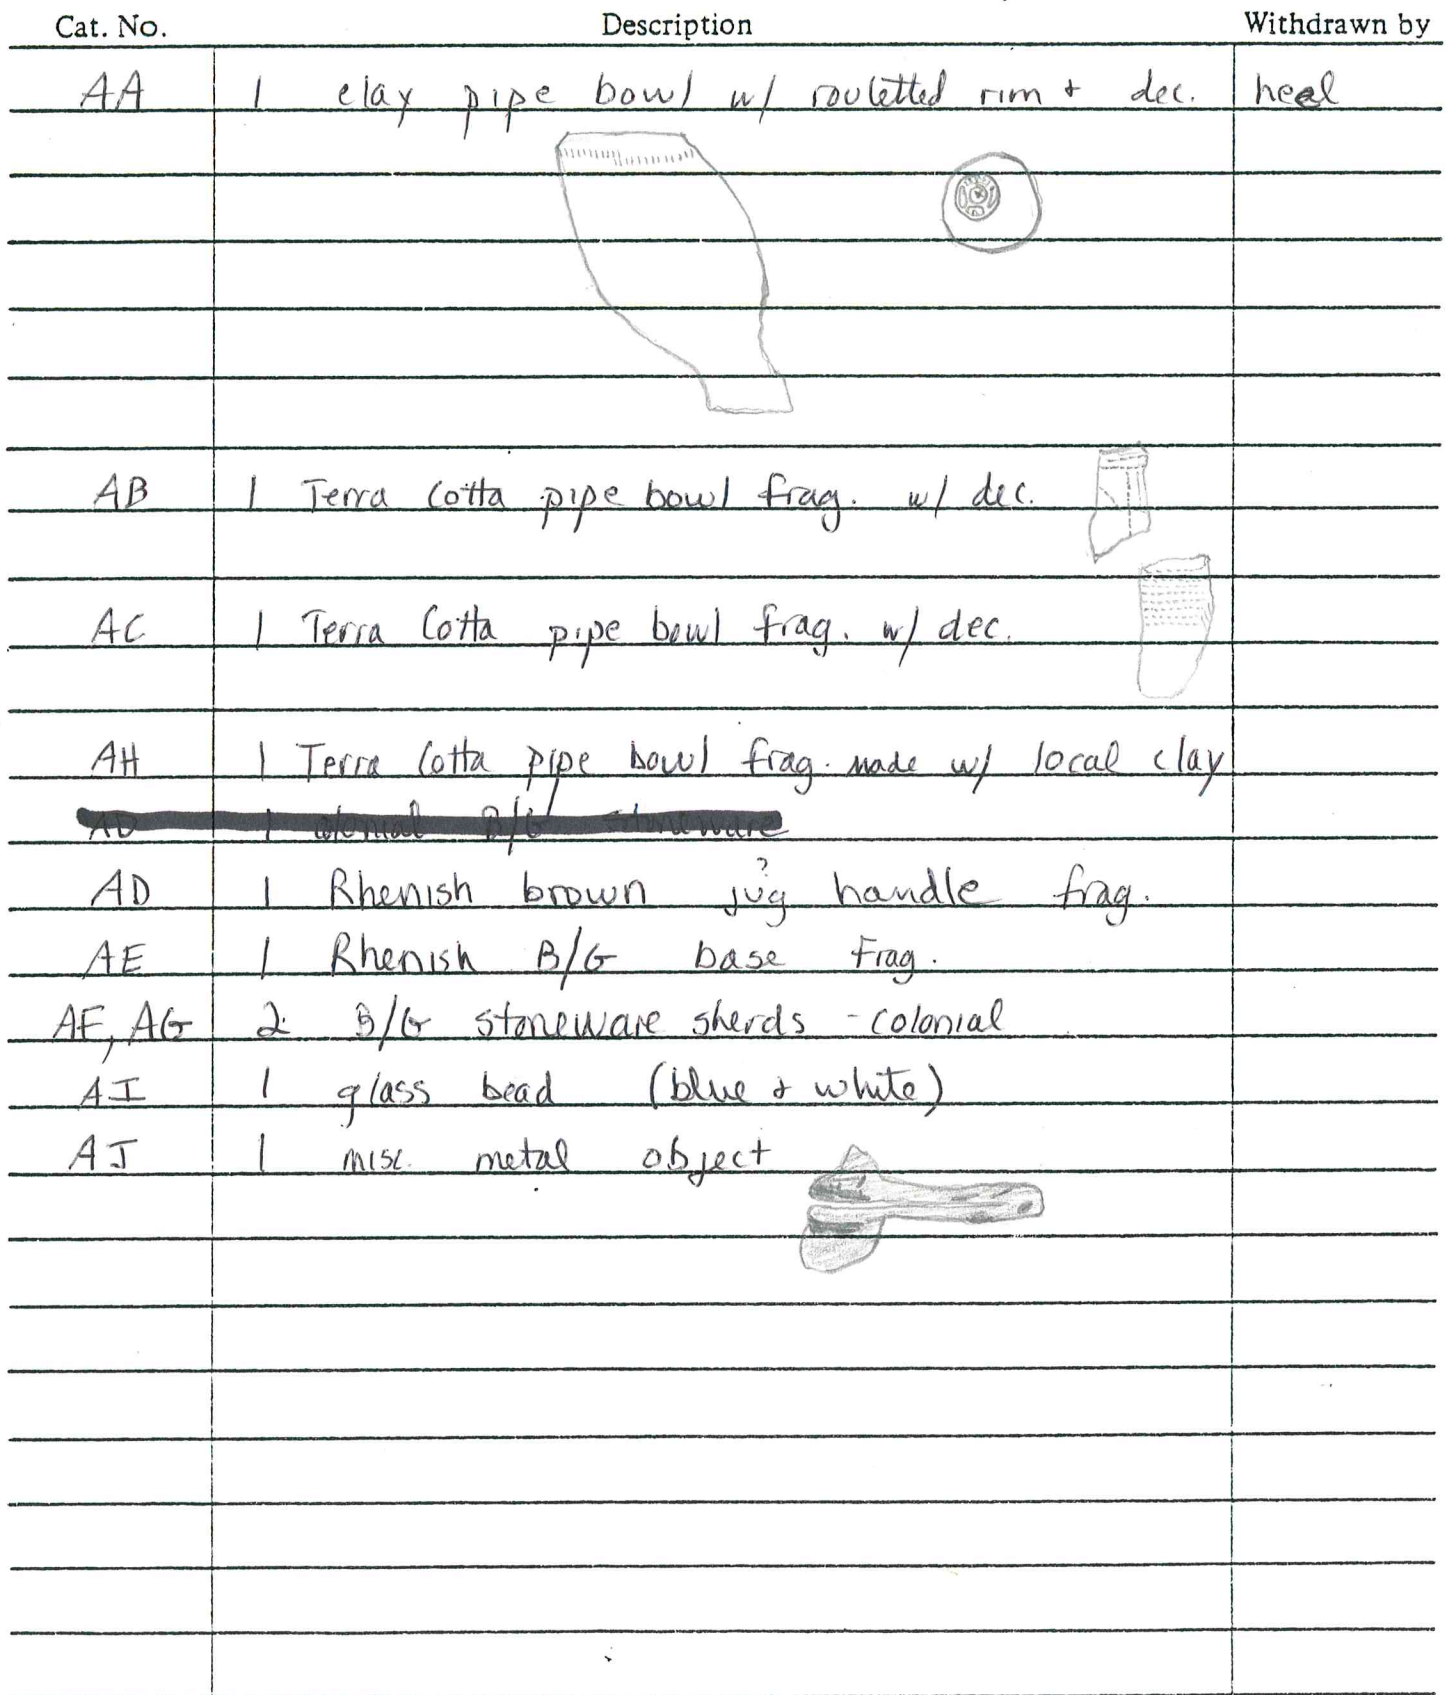 Cat. No. Description Withdrawn by
AA 1 clay pipe bowl w/ rouletted rim + dec. heel
AB 1 Terra Cotta pipe bowl frag. w/ dec.
AC 1 Terra Cotta pipe bowl frag. w/ dec.
AH 1 Terra Cotta pipe bowl frag. made w/ local clay
AD 1 colonial B/G stoneware
?
AD 1 Rhenish brown jug handle frag.
AE 1 Rhenish B/G base frag.
AF, AG 2 B/G stoneware sherds - colonial
AI 1 glass bead (blue + white)
AJ 1 misc. metal object